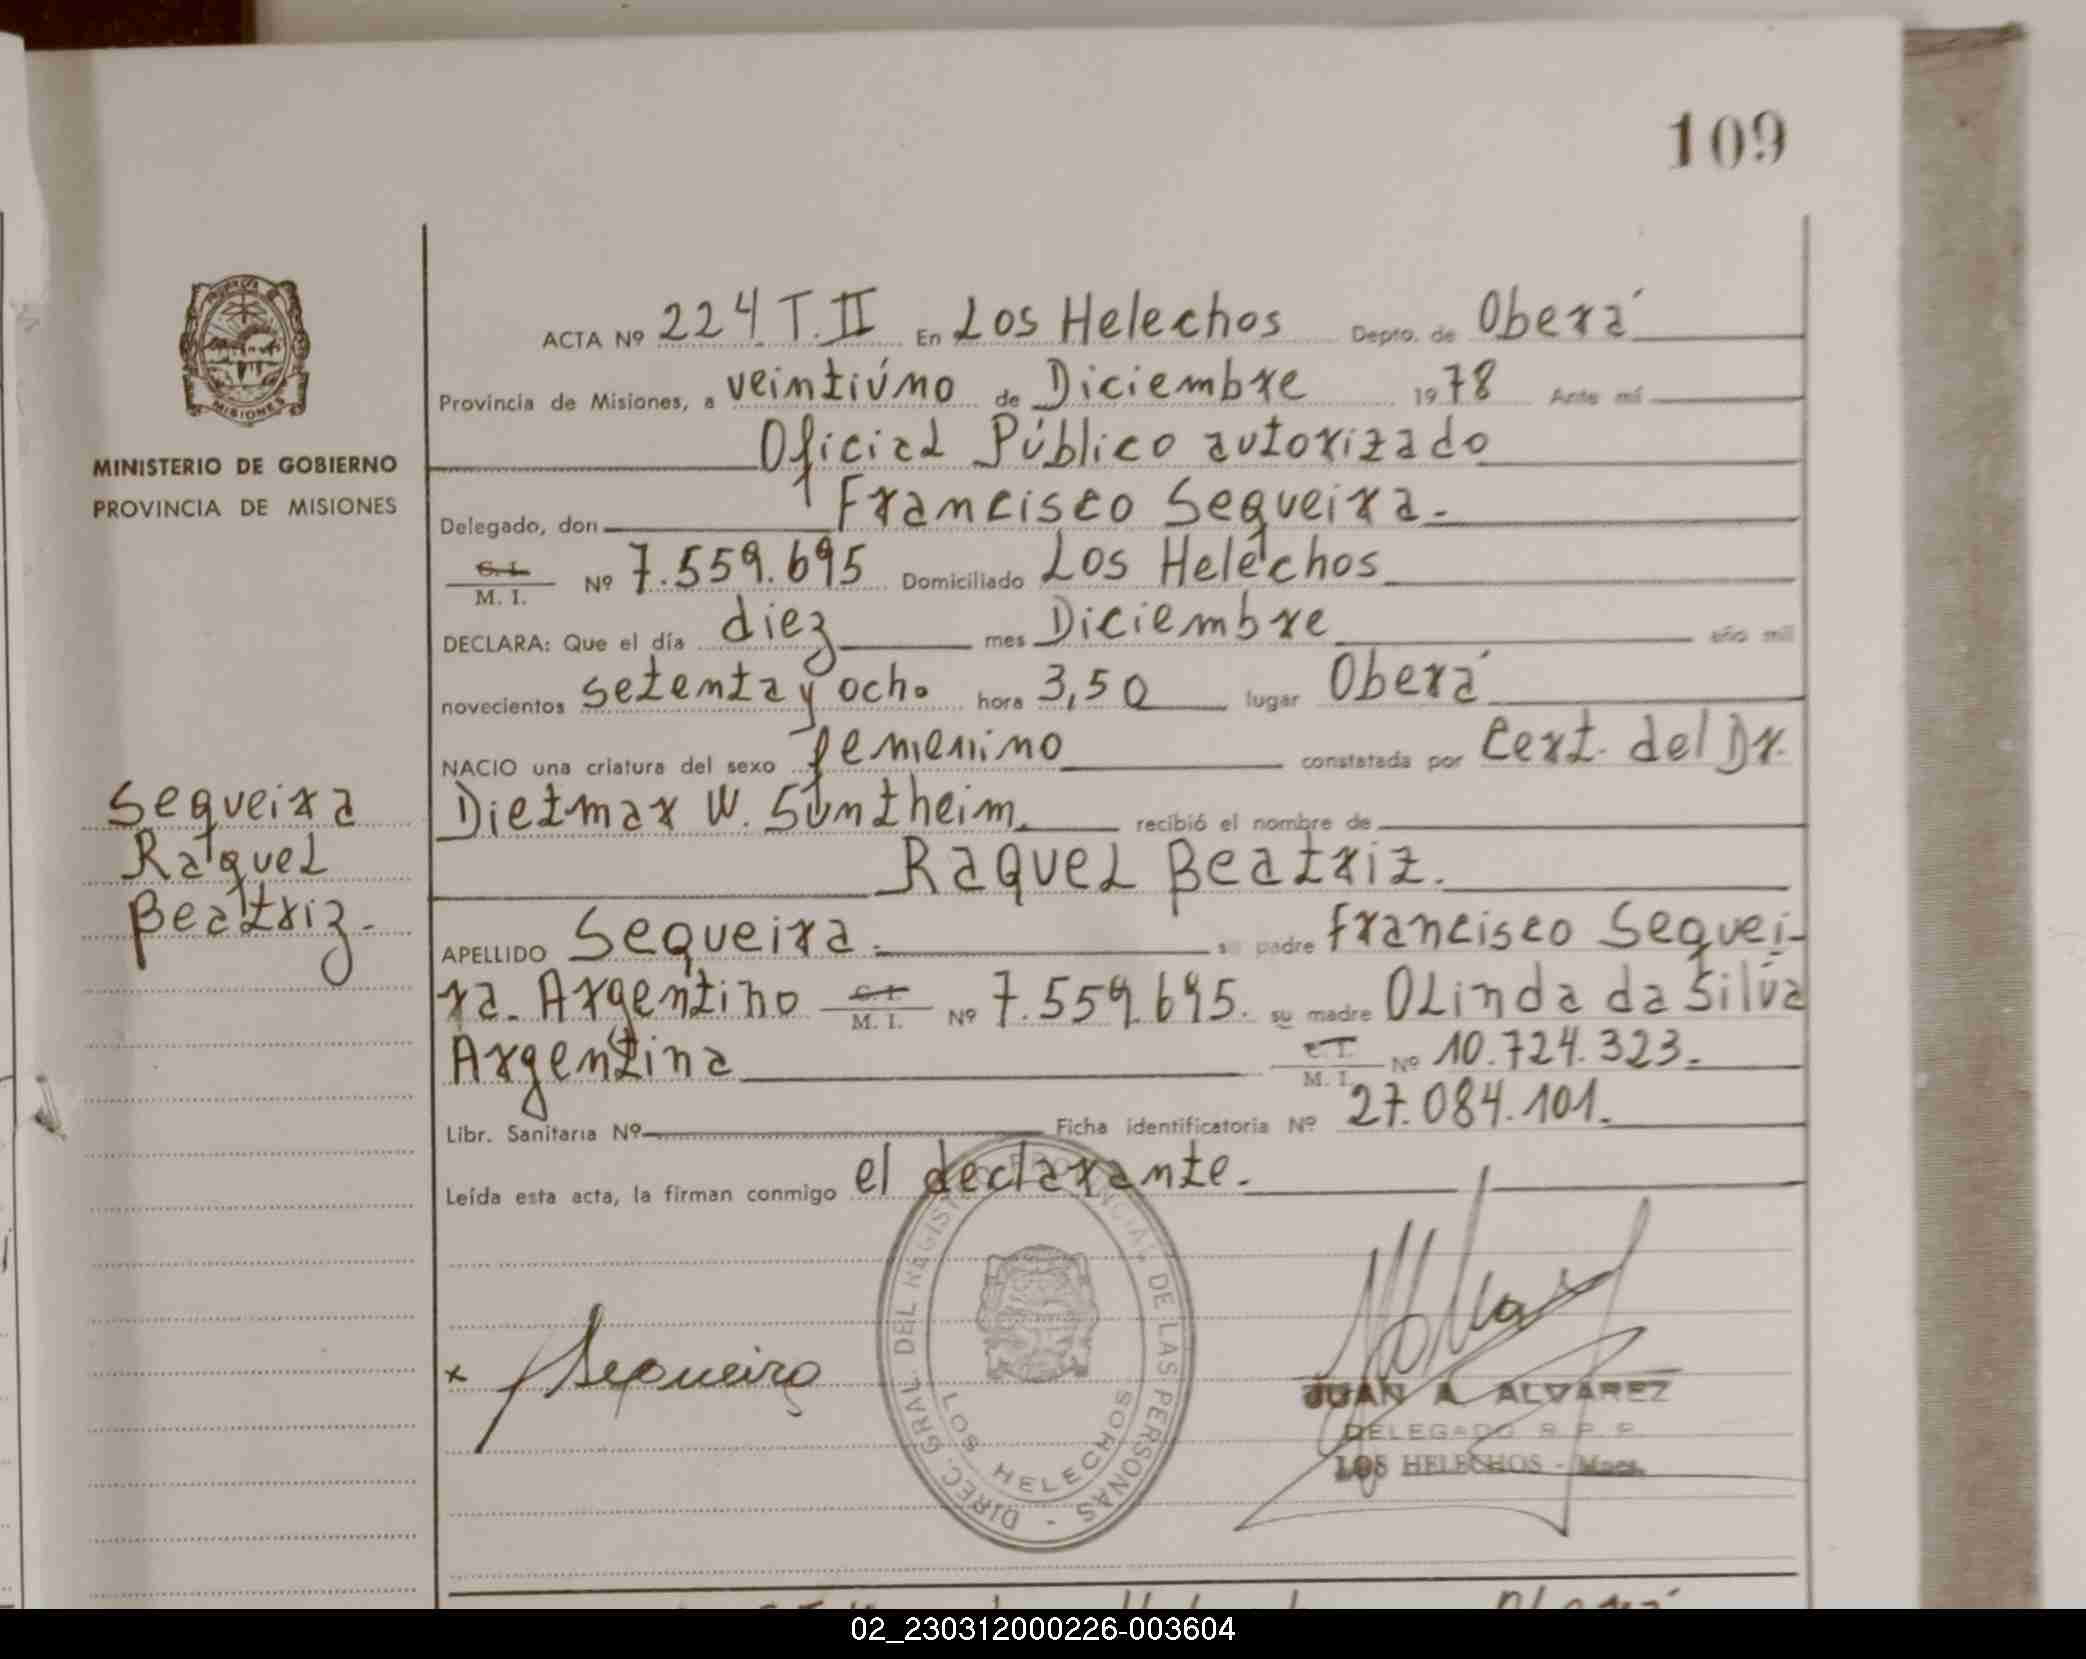 109
ACTA Nº 224 T. II En Los Helechos Depto. de Oberá
Provincia de Misiones, a veintiúno de Diciembre 1978 Ante mí
Oficial Público autorizado
Delegado, don Francisco Sequeira.
C. I.
M. I. Nº 7.559.695 Domiciliado Los Helechos
DECLARA: Que el día diez mes Diciembre año mil
novecientos setenta y ocho hora 3,50 lugar Oberá
NACIO una criatura del sexo femenino constatada por Cert. del Dr.
Dietmar W. Sontheim. recibió el nombre de
Raquel Beatriz.
APELLIDO Sequeira. su padre Francisco Sequei-
ra. Argentino C. I. M. I. Nº 7.559.695. su madre Olinda da Silva
Argentina C. I. M. I. Nº 10.724.323.
Libr. Sanitaria Nº Ficha identificatoria Nº 27.084.101.
Leída esta acta, la firman conmigo el declarante.
x Sequeira
DIREC. GRAL. DEL REGISTRO PROVINCIAL DE LAS PERSONAS -
LOS HELECHOS
JUAN A. ALVAREZ
DELEGADO R. P. P.
LOS HELECHOS - Mnes.
MISIONES
MINISTERIO DE GOBIERNO
PROVINCIA DE MISIONES
Sequeira
Raquel
Beatriz.
02_230312000226-003604